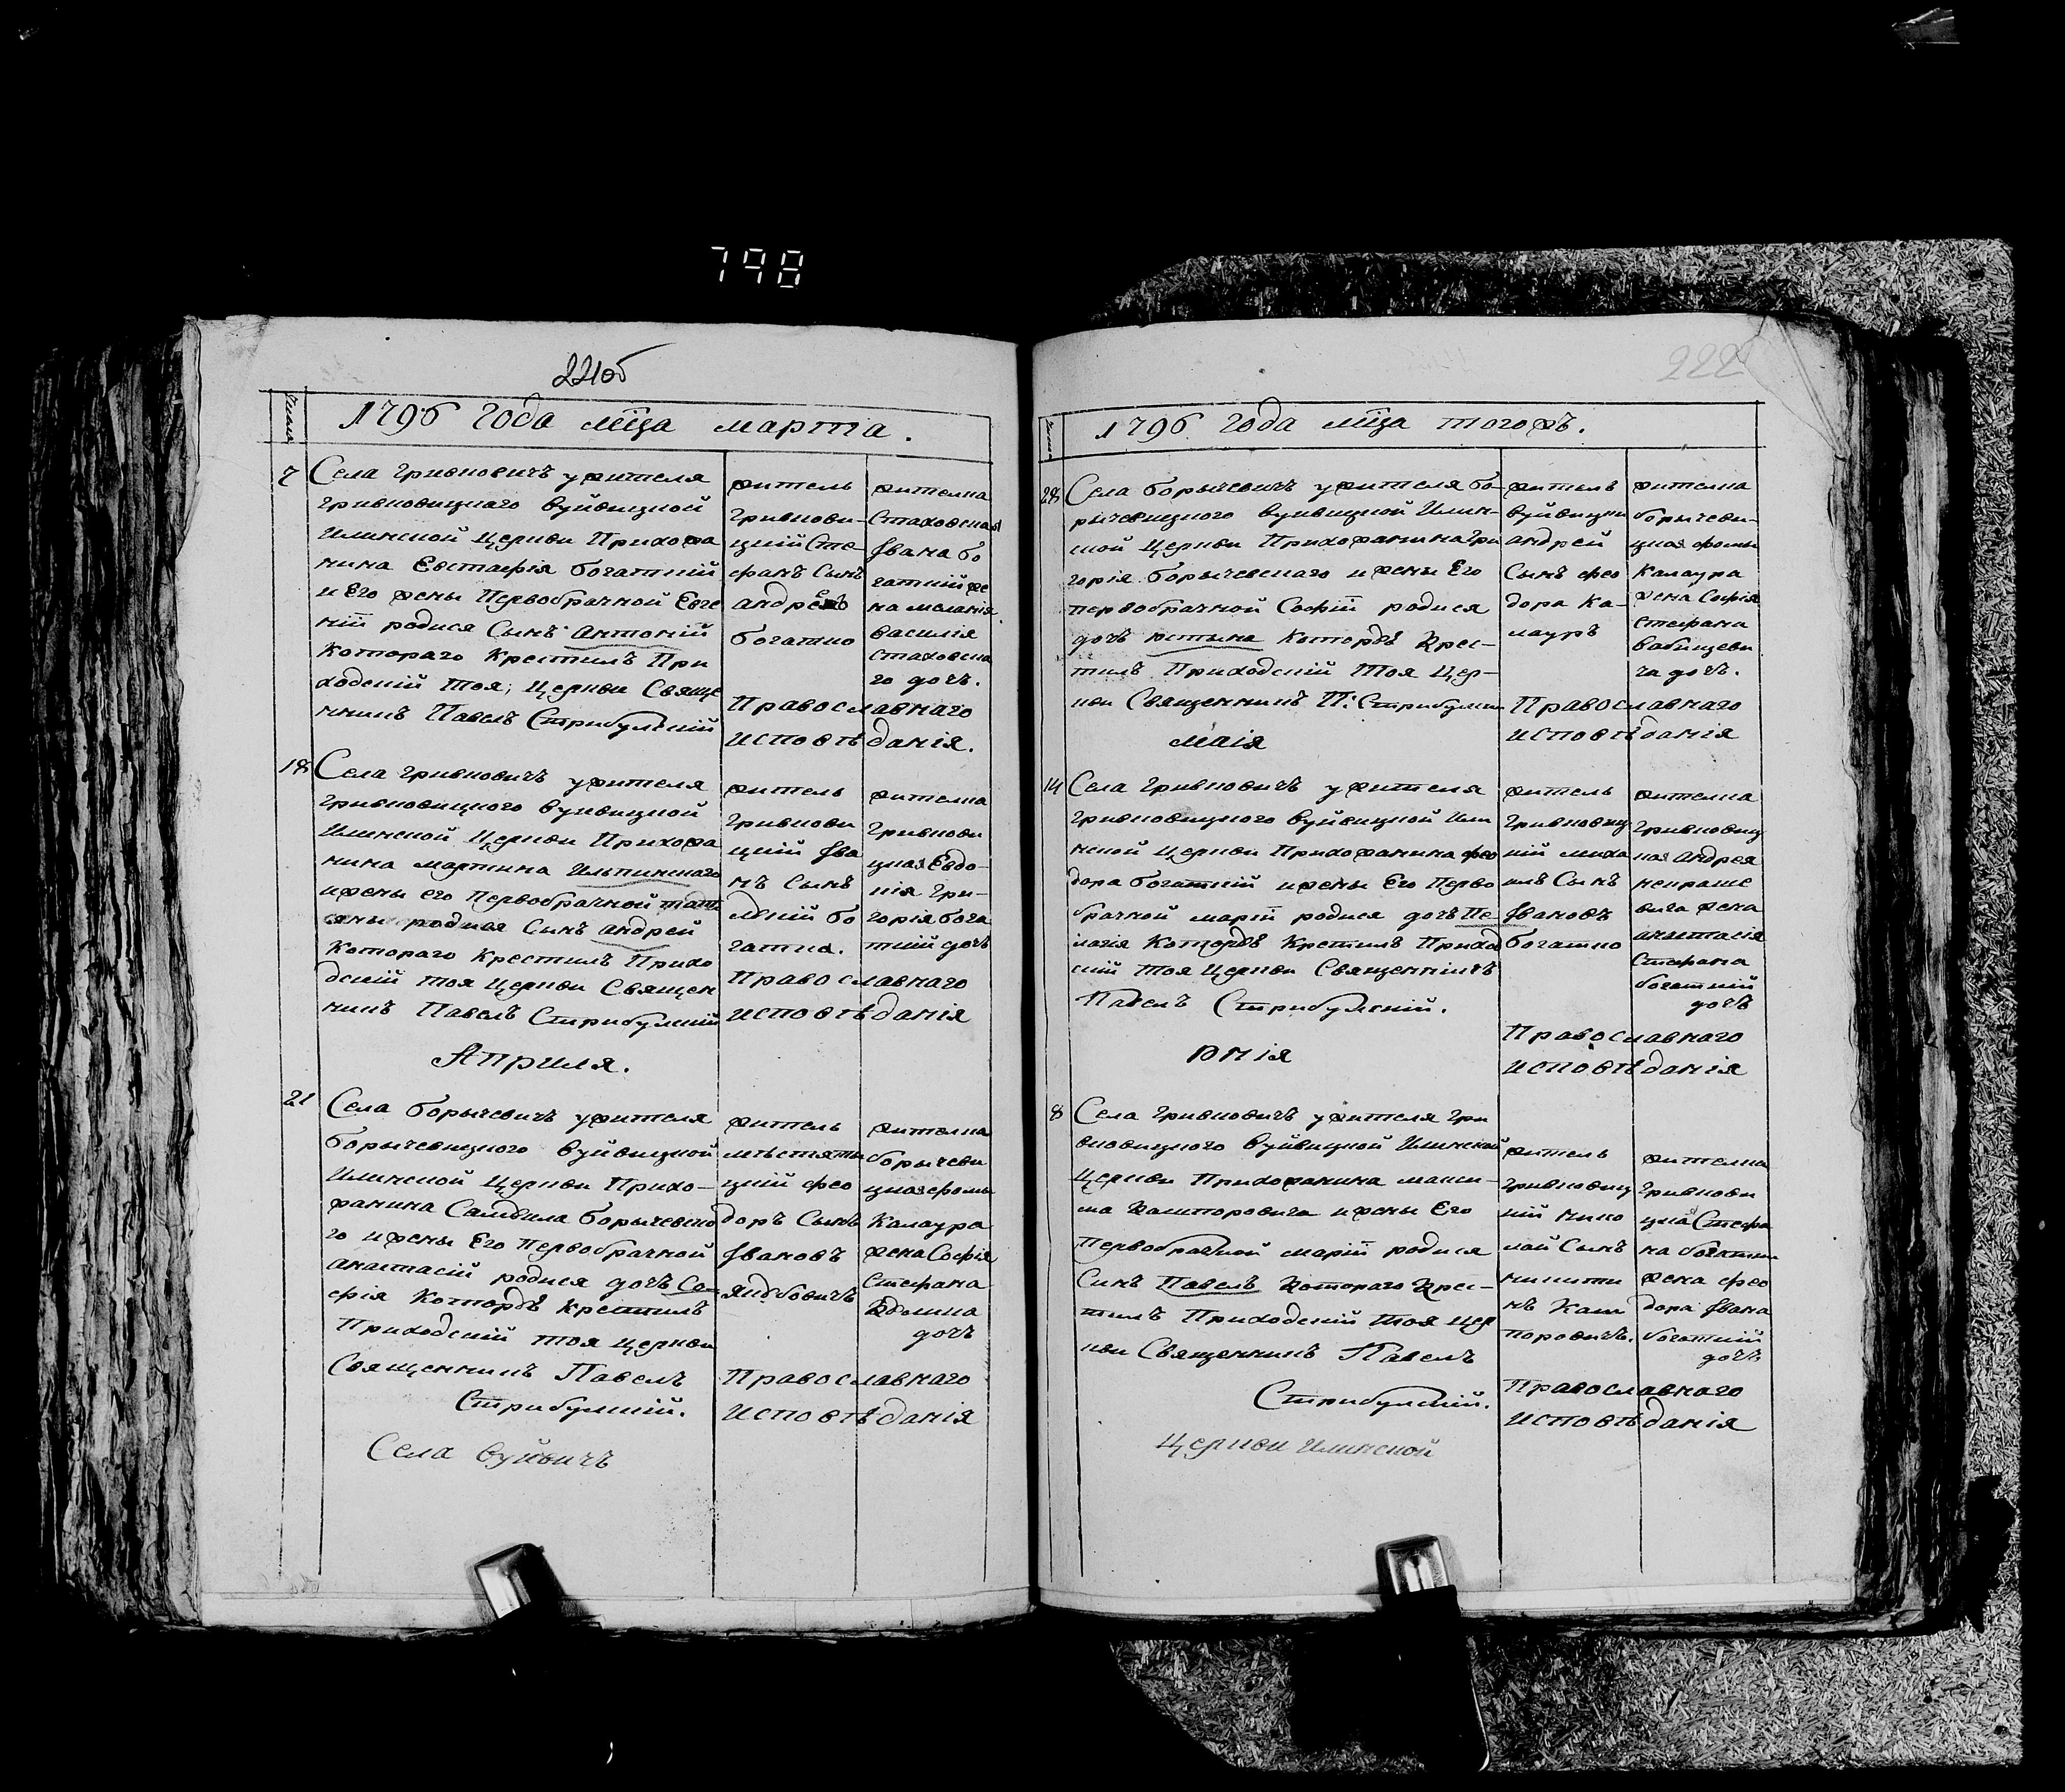 798
221об
Числа
1796 года мца марта.
7
Села Гривковичъ у жителя
Гривковицкаго Вуйвицкой
Илинской Церкви Прихожа
нина Евстафія Богаткій
и Его жены Первобрачной Евге
ніи родися Сынъ Антоній
Котораго Крестилъ При
ходскій тоя Церкви Свяще
нникъ Павелъ Стрибулскій
житель
Гривкови-
цкій Сте-
фанъ Сынъ
Андреевъ
Богатко
жителка
Стаховская
Ивана Бо
гаткій же
на Меланія
Василія
Стаховска
го дочъ.
Православнаго
исповѣданія.
18
Села Гривковичъ у жителя
Гривковицкого Вуйвицкой
Илинской Церкви Прихожа
нина Мартина Ильпинского
и жены его Первобрачной Тати
яны родися Сынъ Андрей
Котораго Крестилъ Прихо
дскій тоя Церкви Священ
никъ Павелъ Стрибулскій
житель
Гривкови
цкій Ива
нъ Сынъ
Бо
гатка.
жителка
Гривкови
цкая Евдо-
кія Гри-
горія Бога
ткій дочъ
Православнаго
исповѣданія
Априля.
21
Села Борычевичъ у жителя
Борычевицкого Вуйвицкой
Илинской Церкви Прихо-
жанина Самуила Борычевско
го и жены Его Первобрачной
Анастасій родися дочъ Со-
фія Котору Крестилъ
Приходскій тоя Церкви
Священникъ Павелъ
Стрибулскій.
житель
мѣстяти
цкій Фео
доръ Сынъ
Ивановъ
жителка
Борычеви
цкая Фомы
Калаура
жена Софія
Стефана
Вдолина
дочъ
Православнаго
исповѣданія
Села Вуйвичъ
222
Числа
1796 года мца тогожъ.
28
Села Борычевичъ у жителя Бо-
рычевицкого Вуйвицкой Илин-
ской Церкви Прихожанина Гри
горія Борычевскаго и жены Его
первобрачной Софіи родися
дочъ Юстына Котору Крес-
тилъ Приходскій Тоя Цер-
кви Священникъ П: Стрибулски
житель
Вуйвицки
Андрей
Сынъ Фео
дора Ка-
лауръ
жителка
Борычеви-
цкая Фомы
Калаура
жена Софія
Стефана
Бабицеви
ча дочъ.
Православнаго
исповѣданія
Маія
14
Села Гривковичъ у жителя
Гривковицкого Вуйвицкой Или
нской Церкви Прихожанина Фео
дора Богаткій и жены Его Перво
брачной Маріи родися дочъ Пе-
лагія Котору Крестилъ Приход
скій тоя Церкви Священникъ
Павелъ Стрибулскій.
житель
Гривковиц
кій Миха
илъ Сынъ
Ивановъ
Богатко
жителка
Гривковиц
кая Андрея
Некраше
вича жена
Анастасія
Стефана
Богаткій
дочъ
Православнаго
исповѣданія
Юнія
8
Села Гривковичъ у жителя Гри
вковицкого Вуйвицкой Илинской
Церкви Прихожанина Макси-
ма Кашторовича и жены Его
Первобрачной Маріи родися
Синъ Павелъ Котораго Крес-
тилъ Приходскій Тоя Цер
кви Священникъ Павелъ
Стрибулскій.
житель
Гривковиц
кій Нико
лай Сынъ
Никити
нъ Каш
торовичъ.
жителка
Гривкови
цкая Стефа
на Богатки
жена Фео
дора Ивана
Богаткій
дочъ
Православнаго
исповѣданія
Церкви Илинской